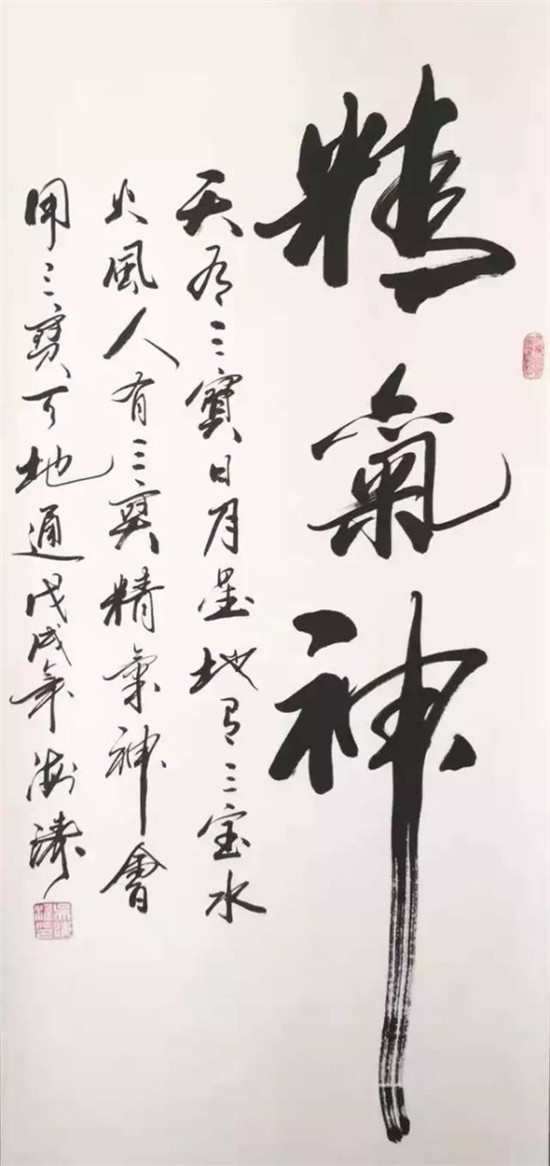 精氣神
天有三寶日月星地有三宝水
火風人有三寶精氣神會
用三寶可地通戊戌年海濤